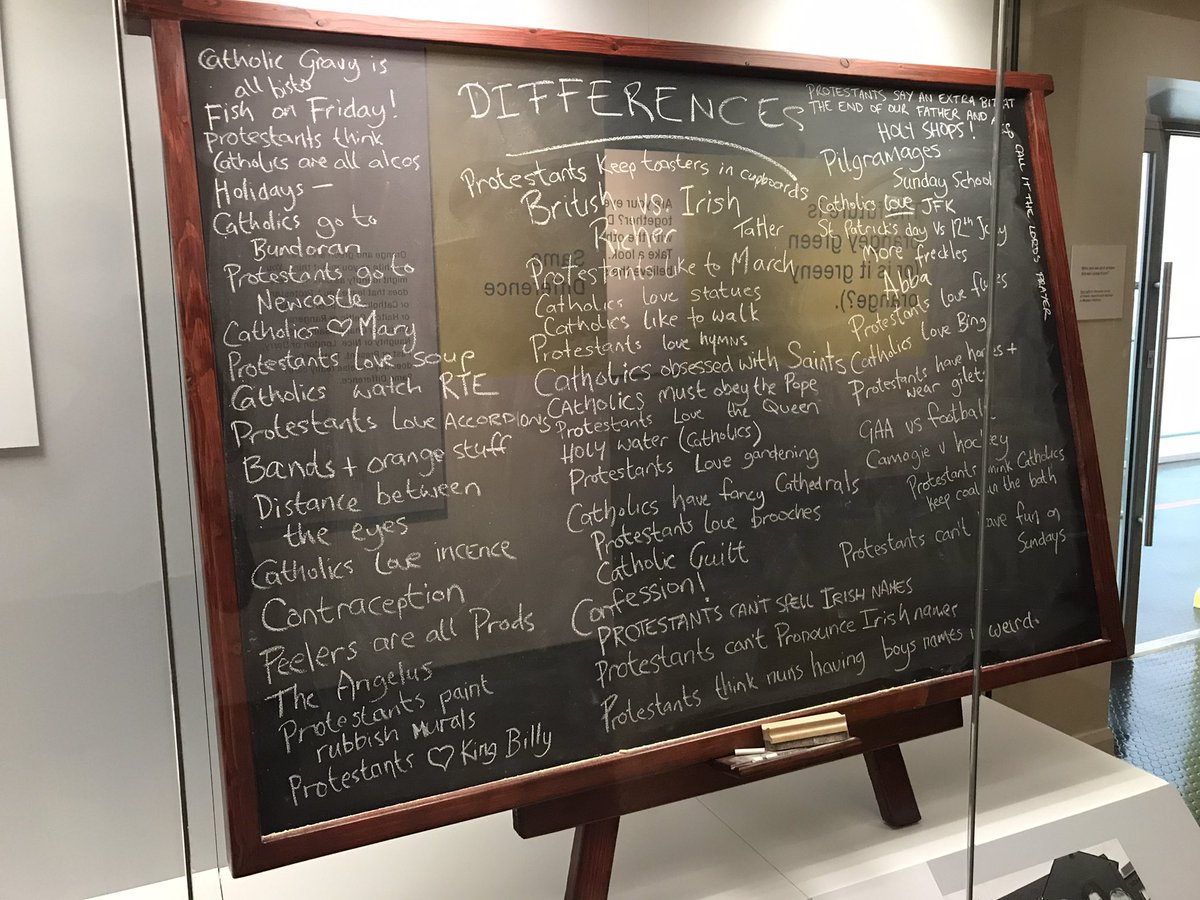 DIFFERENCES
Catholic Gravy is
all bisto
Fish on Friday!
Protestants think
Catholics are all alcos
Holidays —
Catholics go to
Bundoran
Protestants go to
Newcastle
Catholics ♡ Mary
Protestants love soup
Catholics watch RTE
Protestants Love ACCORDIONS
Bands + orange stuff
Distance between
the eyes
Catholics Love incence
Contraception
Peelers are all Prods
The Angelus
Protestants paint
rubbish Murals
Protestants ♡ King Billy
Protestants Keep toasters in cupboards
British vs. Irish
Richer Taller
Protestants like to March
Catholics love statues
Catholics like to walk
Protestants love hymns
Catholics obsessed with Saints
CAtHOLICS must obey the Pope
Protestants Love the Queen
HOLY WATER (Catholics)
Protestants Love gardening
Catholics have fancy Cathedrals
Protestants love brooches
Catholic Guilt
Confession!
PROTESTANTS CANT SPELL IRISH NAMES
Protestants can't Pronounce Irish names
Protestants think nuns having boys names is weird.
PROTESTANTS SAY AN EXTRA BIT AT
THE END OF OUR FATHER AND
CALL IT THE LORDS PRAYER
HOLY SHOPS!
Pilgramages
Sunday School
Catholics love JFK
St Patrick's day vs 12th July
More freckles
Abba
Protestants love flutes
Catholics love Bingo
Protestants have horses +
wear gilets
GAA vs football
Camogie v hockey
Protestants think Catholics
keep coal in the bath
Protestants can't have fun on
Sundays
Same
Difference